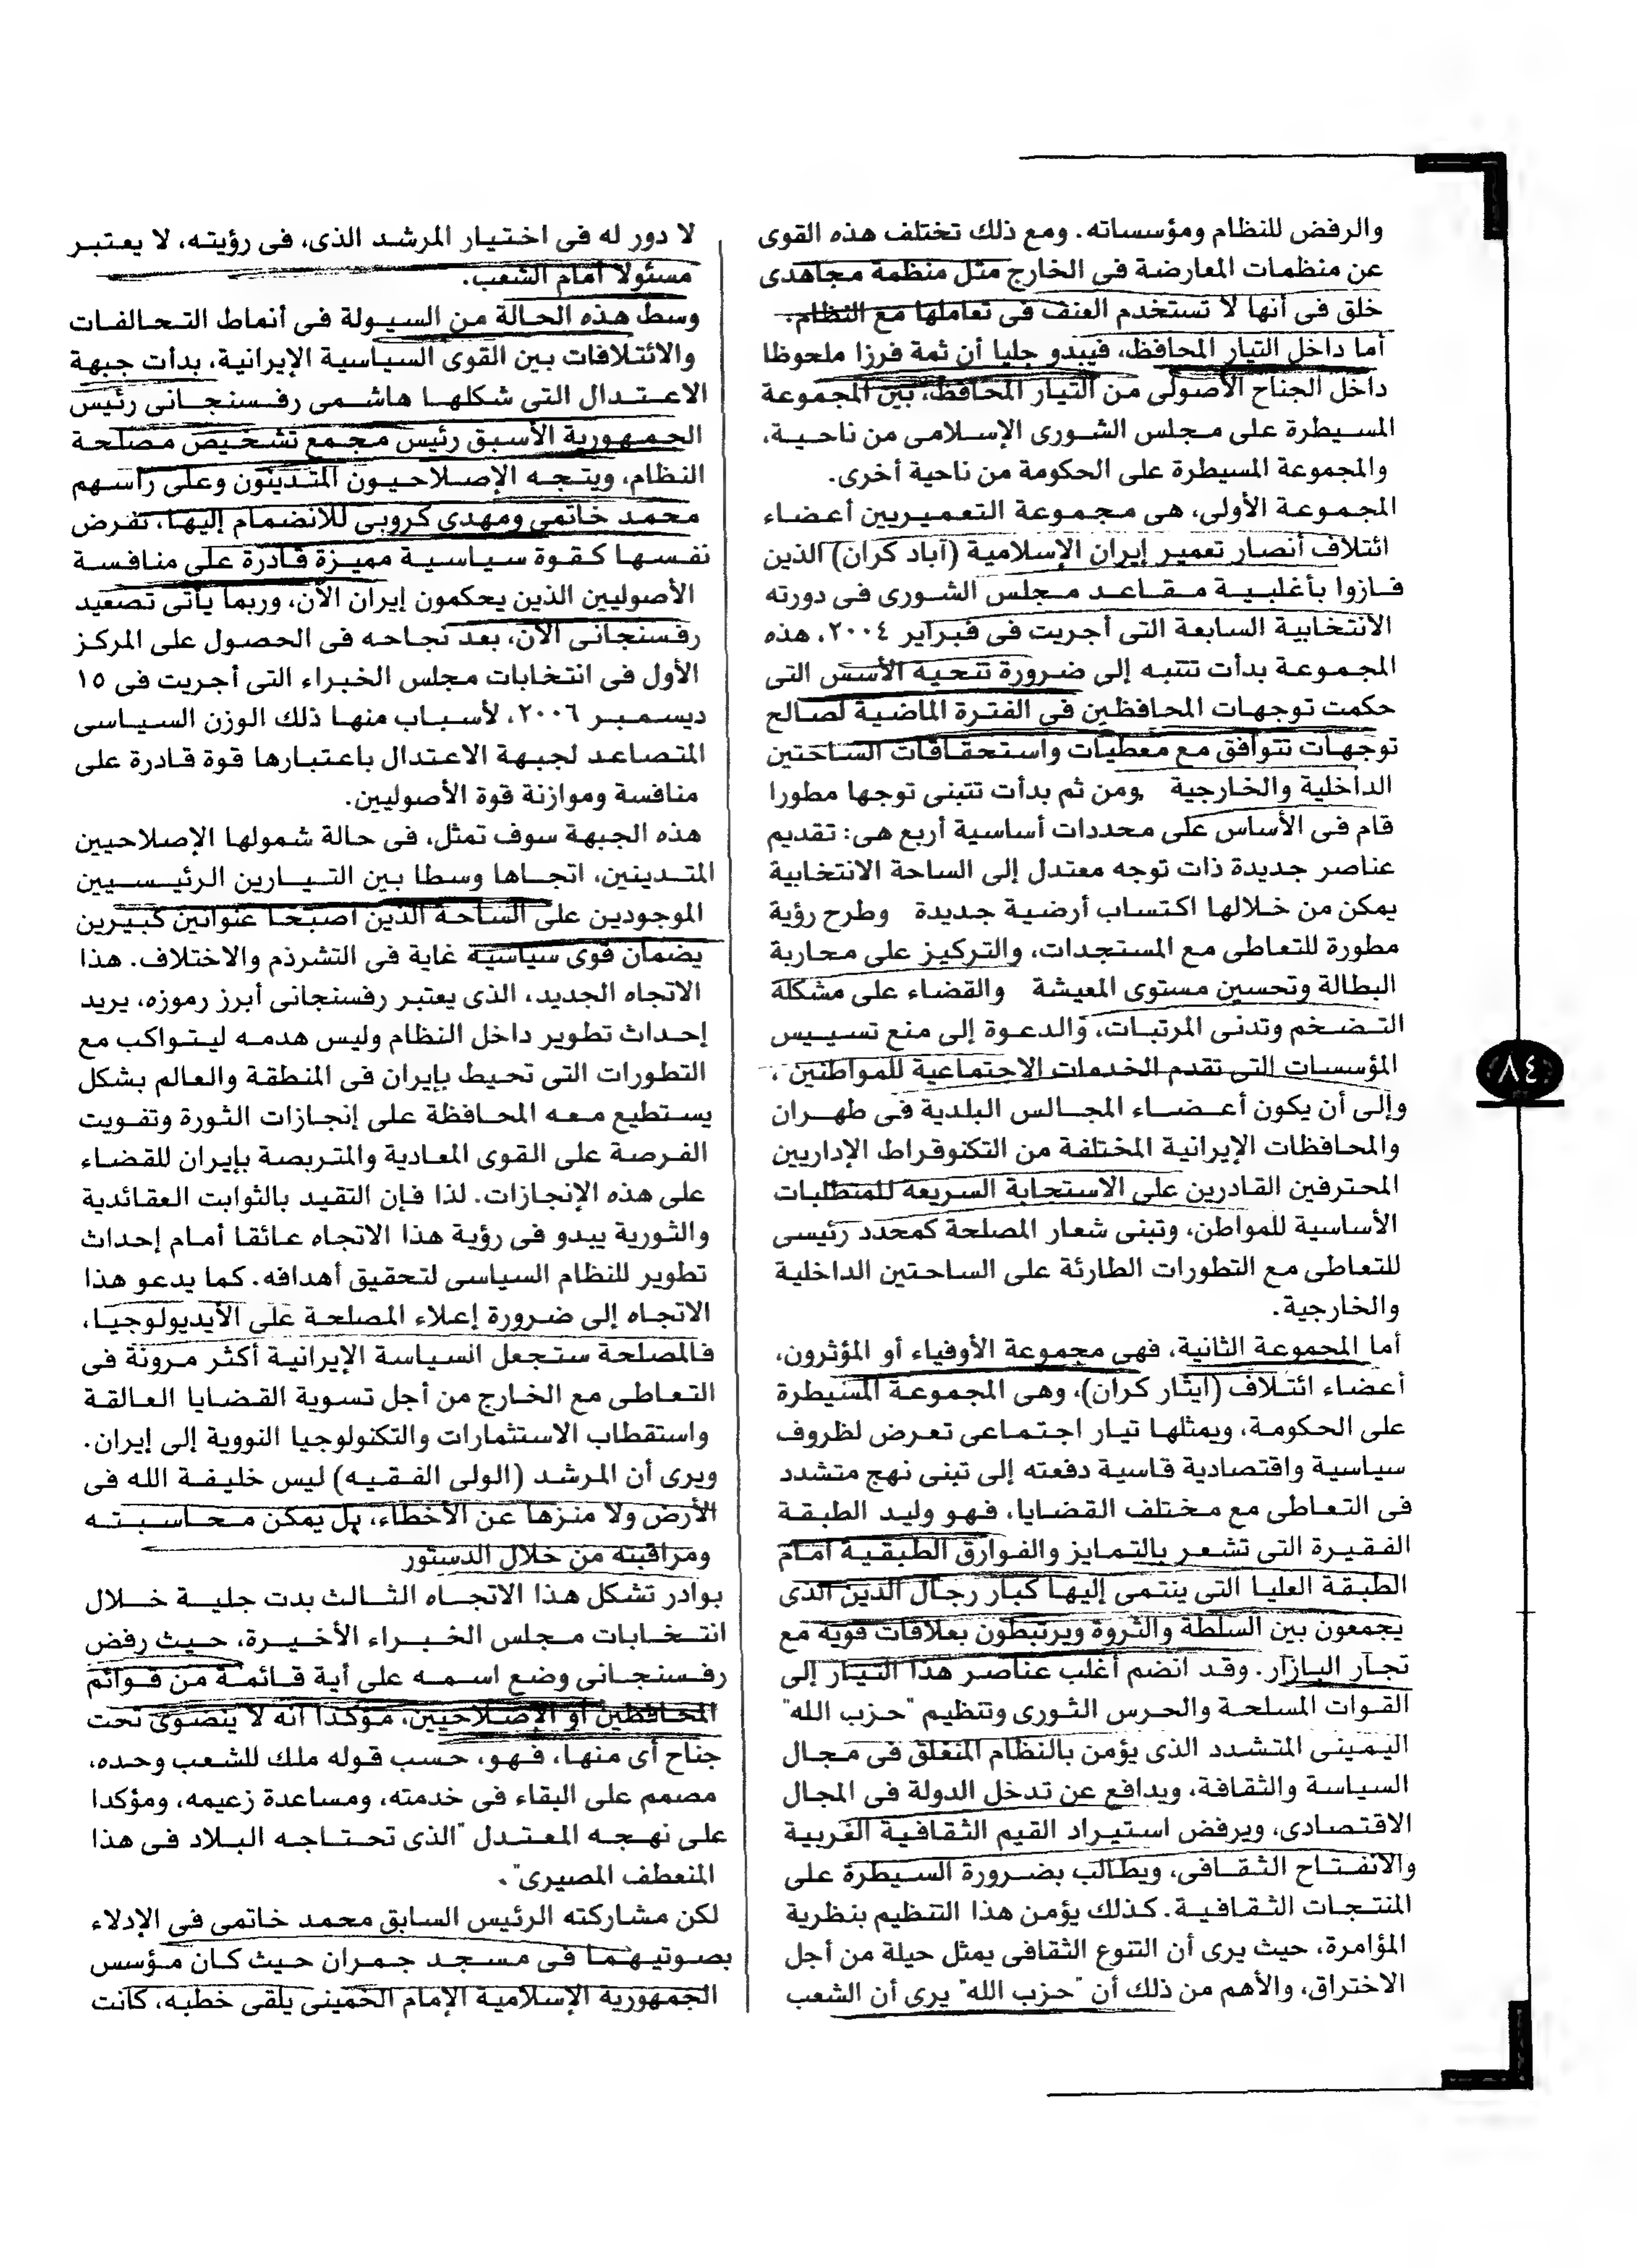 والرفض للنظام ومؤسساته. ومع ذلك تختلف هذه القوى
عن منظمات المعارضة فى الخارج مثل منظمة مجاهدى
خلق فى أنها لا تستخدم العنف فى تعاملها مع النظام.
أما داخل التيار المحافظ، فيبدو جليا أن ثمة فرزا ملحوظا
داخل الجناح الأصولى من التيار المحافظ، بين المجموعة
المسيطرة على مجلس الشورى الإسلامى من ناحية،
والمجموعة المسيطرة على الحكومة من ناحية أخرى.
المجموعة الأولى، هى مجموعة التعميريين أعضاء
ائتلاف أنصار تعمير إيران الإسلامية (آباد كران) الذين
فازوا بأغلبية مقاعد مجلس الشورى فى دورته
الانتخابية السابعة التى أجريت فى فبراير ٢٠٠٤، هذه
المجموعة بدأت تنتبه إلى ضرورة تنحية الأسس التى
حكمت توجهات المحافظين فى الفترة الماضية لصالح
توجهات تتوافق مع معطيات واستحقاقات الساحتين
الداخلية والخارجية ومن ثم بدأت تتبنى توجها مطورا
قام فى الأساس على محددات أساسية أربع هى: تقديم
عناصر جديدة ذات توجه معتدل إلى الساحة الانتخابية
يمكن من خلالها اكتساب أرضية جديدة وطرح رؤية
مطورة للتعاطى مع المستجدات، والتركيز على محاربة
البطالة وتحسين مستوى المعيشة والقضاء على مشكلة
التضخم وتدنى المرتبات، والدعوة إلى منع تسييس
المؤسسات التى تقدم الخدمات الاجتماعية للمواطنين،
وإلى أن يكون أعضاء المجالس البلدية فى طهران
والمحافظات الإيرانية المختلفة من التكنوقراط الإداريين
المحترفين القادرين على الاستجابة السريعة للمتطلبات
الأساسية للمواطن، وتبنى شعار المصلحة كمحدد رئيسى
للتعاطى مع التطورات الطارئة على الساحتين الداخلية
والخارجية.
أما المجموعة الثانية، فهى مجموعة الأوفياء أو المؤثرون،
أعضاء ائتلاف (ايثار كران)، وهى المجموعة المسيطرة
على الحكومة، ويمثلها تيار اجتماعى تعرض لظروف
سياسية واقتصادية قاسية دفعته إلى تبنى نهج متشدد
فى التعاطى مع مختلف القضايا، فهو وليد الطبقة
الفقيرة التى تشعر بالتمايز والفوارق الطبقية أمام
الطبقة العليا التى ينتمى إليها كبار رجال الدين الذى
يجمعون بين السلطة والثروة ويرتبطون بعلاقات قوية مع
تجار البازار. وقد انضم أغلب عناصر هذا التيار إلى
القوات المسلحة والحرس الثورى وتنظيم "حزب الله"
اليمينى المتشدد الذى يؤمن بالنظام المنغلق فى مجال
السياسة والثقافة، ويدافع عن تدخل الدولة فى المجال
الاقتصادى، ويرفض استيراد القيم الثقافية الغربية
والانفتاح الثقافى، ويطالب بضرورة السيطرة على
المنتجات الثقافية. كذلك يؤمن هذا التنظيم بنظرية
المؤامرة، حيث يرى أن التنوع الثقافى يمثل حيلة من أجل
الاختراق، والأهم من ذلك أن "حزب الله" يرى أن الشعب
لا دور له فى اختيار المرشد الذى، فى رؤيته، لا يعتبر
مسئولا أمام الشعب.
وسط هذه الحالة من السيولة فى أنماط التحالفات
والائتلافات بين القوى السياسية الإيرانية، بدأت جبهة
الاعتدال التى شكلها هاشمى رفسنجانى رئيس
الجمهورية الأسبق رئيس مجمع تشخيص مصلحة
النظام، ويتجه الإصلاحيون المتدينون وعلى رأسهم
محمد خاتمى ومهدى كروبى للانضمام إليها، تفرض
نفسها كقوة سياسية مميزة قادرة على منافسة
الأصوليين الذين يحكمون إيران الآن، وربما يأتى تصعيد
رفسنجانى الآن، بعد نجاحه فى الحصول على المركز
الأول فى انتخابات مجلس الخبراء التى أجريت فى ١٥
ديسمبر ٢٠٠٦، لأسباب منها ذلك الوزن السياسى
المتصاعد لجبهة الاعتدال باعتبارها قوة قادرة على
منافسة وموازنة قوة الأصوليين.
هذه الجبهة سوف تمثل، فى حالة شمولها الإصلاحيين
المتدينين، اتجاها وسطا بين التيارين الرئيسيين
الموجودين على الساحة الذين أصبحا عنوانين كبيرين
يضمان قوى سياسية غاية فى التشرذم والاختلاف. هذا
الاتجاه الجديد، الذى يعتبر رفسنجانى أبرز رموزه، يريد
إحداث تطوير داخل النظام وليس هدمه ليتواكب مع
التطورات التى تحيط بإيران فى المنطقة والعالم بشكل
يستطيع معه المحافظة على إنجازات الثورة وتفويت
الفرصة على القوى المعادية والمتربصة بإيران للقضاء
على هذه الإنجازات. لذا فإن التقيد بالثوابت العقائدية
والثورية يبدو فى رؤية هذا الاتجاه عائقا أمام إحداث
تطوير للنظام السياسى لتحقيق أهدافه. كما يدعو هذا
الاتجاه إلى ضرورة إعلاء المصلحة على الأيديولوجيا،
فالمصلحة ستجعل السياسة الإيرانية أكثر مرونة فى
التعاطى مع الخارج من أجل تسوية القضايا العالقة
واستقطاب الاستثمارات والتكنولوجيا النووية إلى إيران.
ويرى أن المرشد (الولى الفقيه) ليس خليفة الله فى
الأرض ولا منزها عن الأخطاء، بل يمكن محاسبته
ومراقبته من خلال الدستور
بوادر تشكل هذا الاتجاه الثالث بدت جلية خلال
انتخابات مجلس الخبراء الأخيرة، حيث رفض
رفسنجانى وضع اسمه على أية قائمة من قوائم
المحافظين أو الإصلاحيين، مؤكدا أنه لا ينضوى تحت
جناح أى منها، فهو، حسب قوله ملك للشعب وحده،
مصمم على البقاء فى خدمته، ومساعدة زعيمه، ومؤكدا
على نهجه المعتدل "الذى تحتاجه البلاد فى هذا
المنعطف المصيرى".
لكن مشاركته الرئيس السابق محمد خاتمى فى الإدلاء
بصوتيهما فى مسجد جمران حيث كان مؤسس
الجمهورية الإسلامية الإمام الخمينى يلقى خطبه، كانت
٨٤